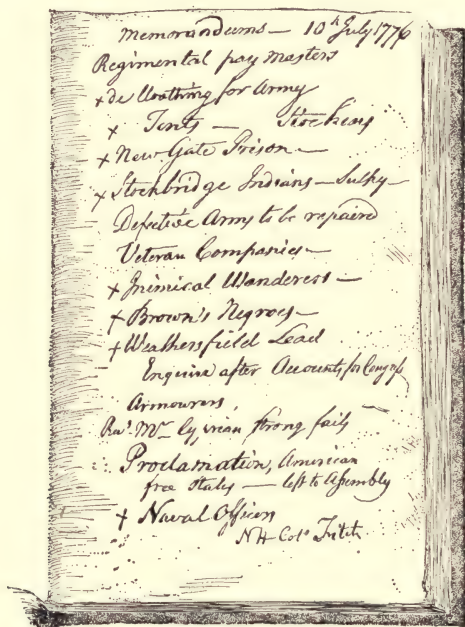 Memorandums — 10th July 1776
Regimental pay Masters
+ do Cloathing for Army
+ Tents — Stockins
+ New Gate Prison —
+ Stockbridge Indians — Sulky —
Defective Arms to be repaired
Veteran Companies —
+ Inimical Wanderers —
+ Brown's Negroes —
+ Weathersfield Lead
Enquire after Accounts for Congress
Armourers
Revd Mr strong fails
Proclamation, American
free States — left to Assembly
+ Naval Officers
NH Colo Fitch